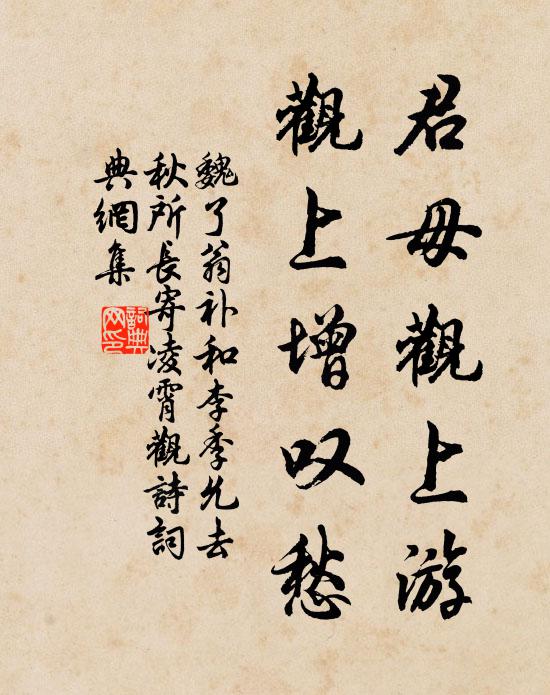 君毋觀上游
觀上增叹愁
魏了翁补和李季允去
秋所長寄凌霄觀詩詞
典網集
詞典网印